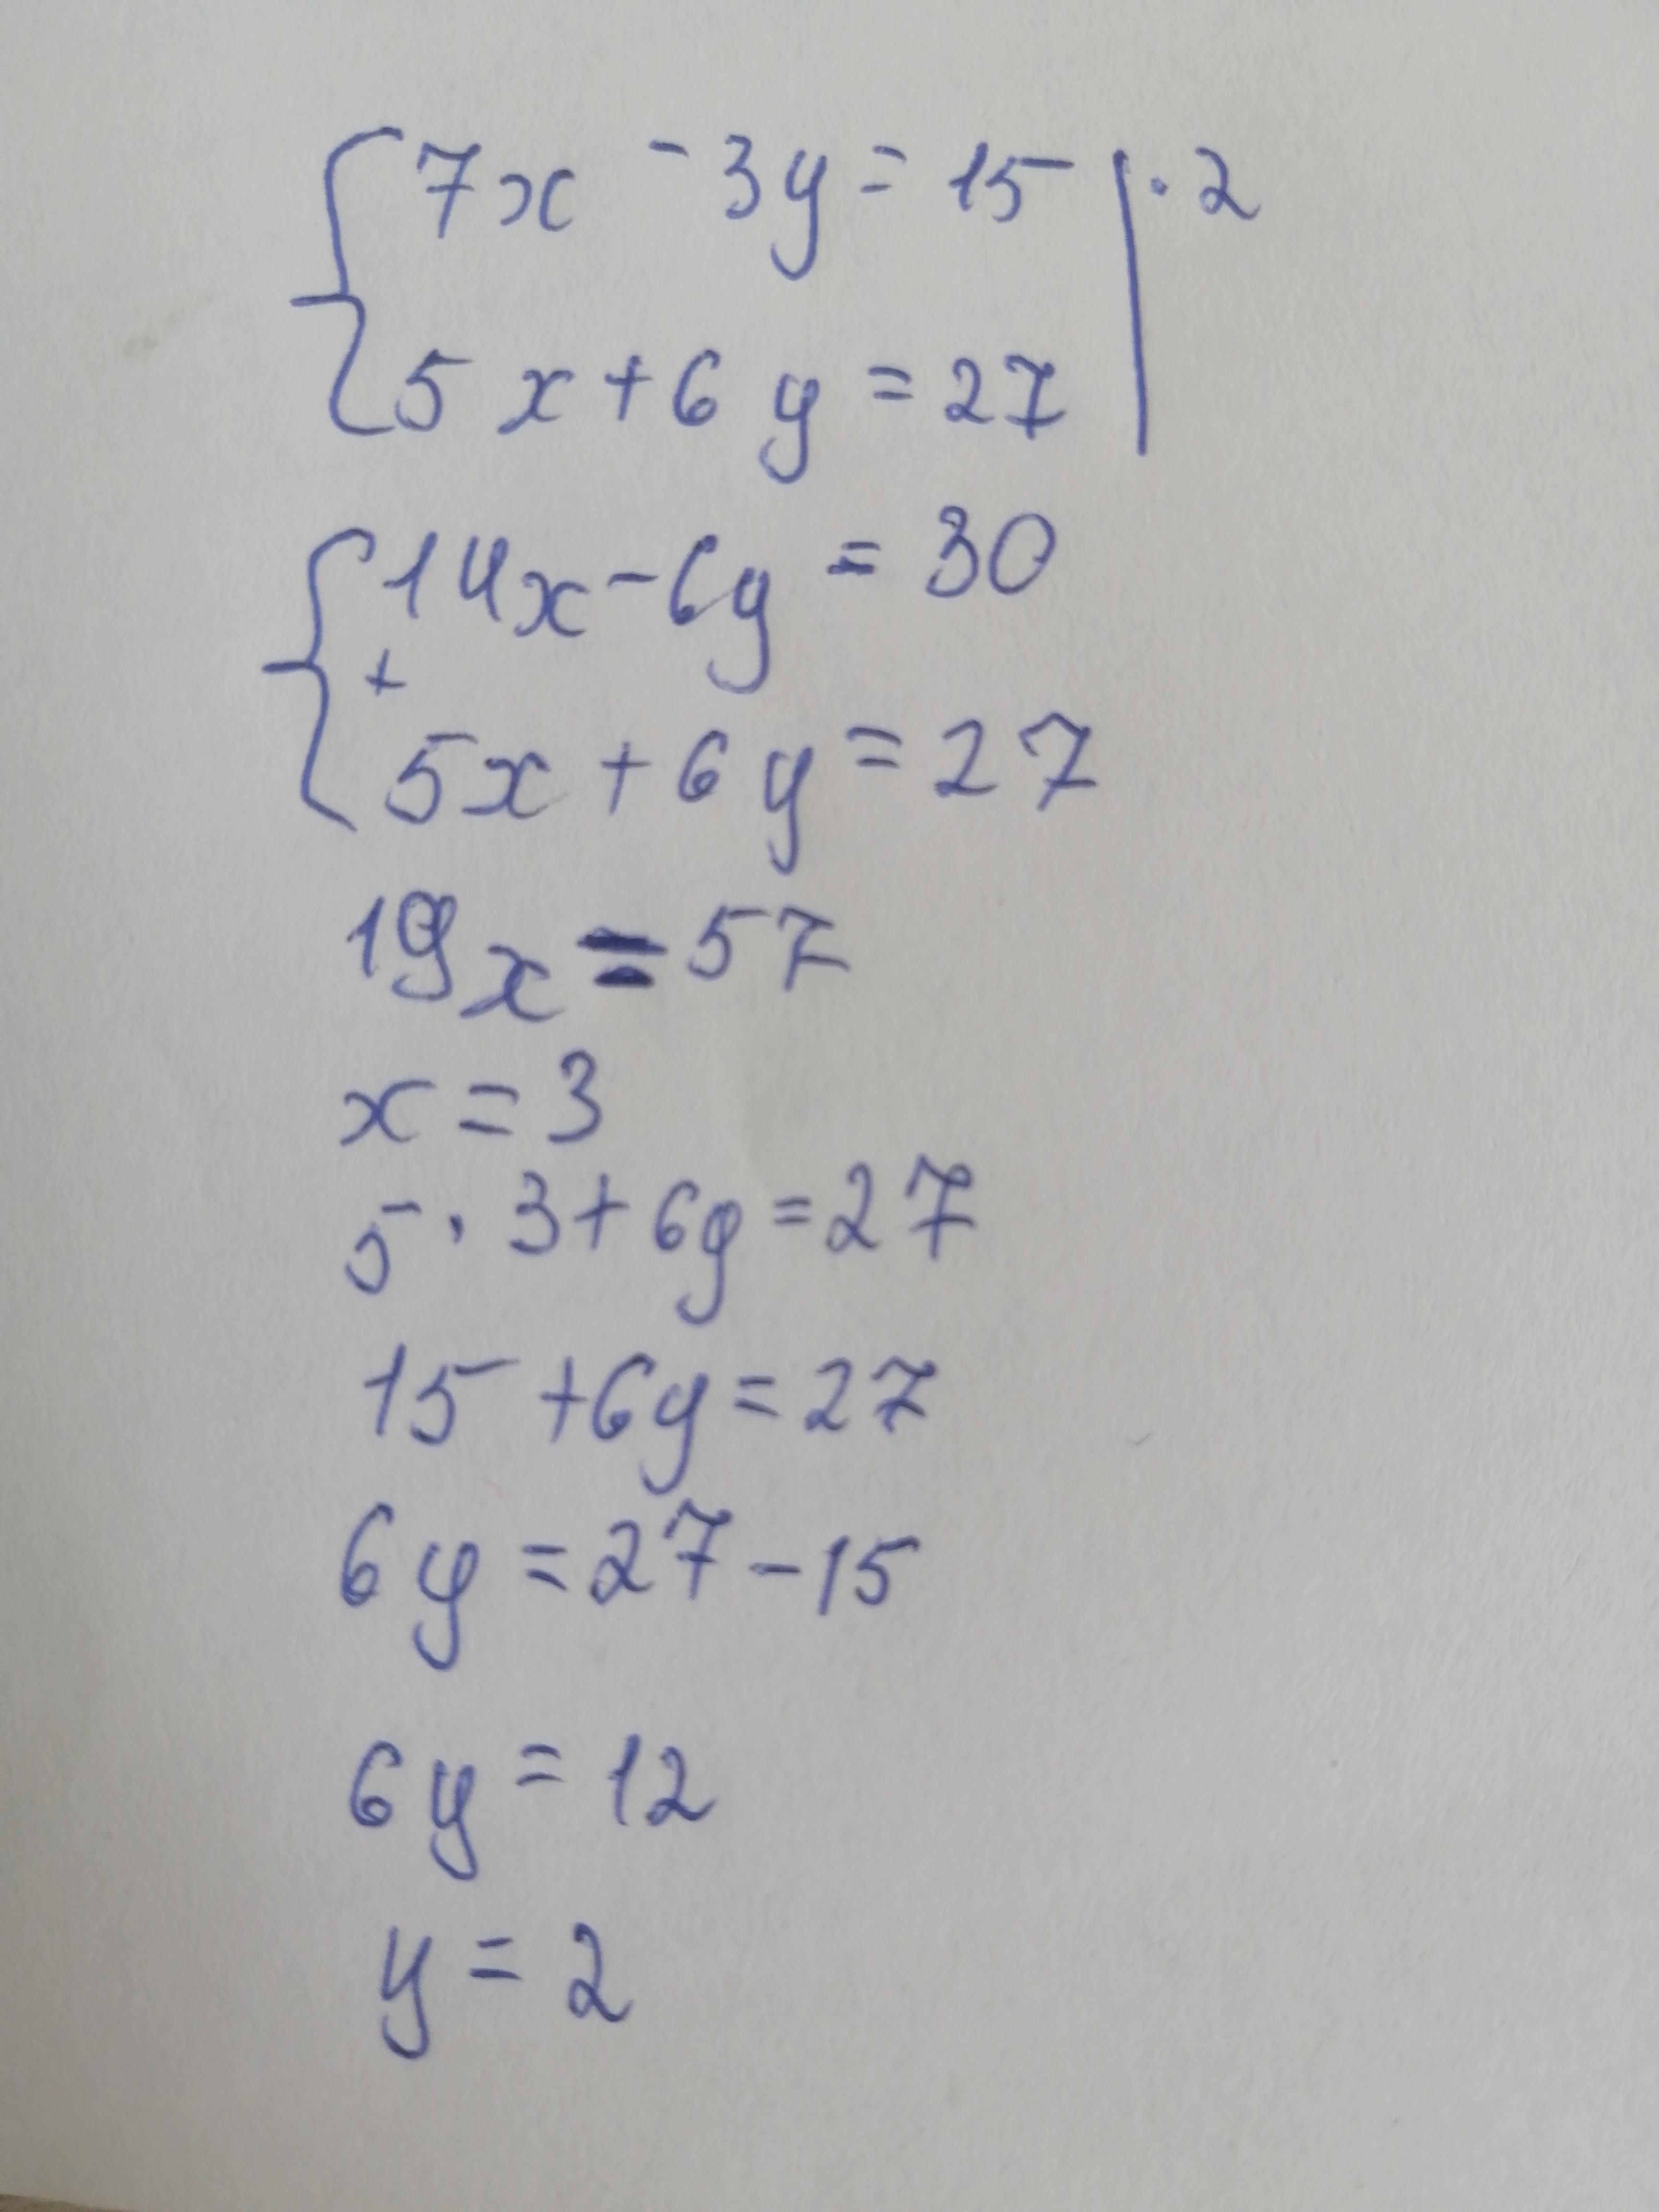 { 7x - 3y = 15 | · 2
5x + 6y = 27
{ 14x - 6y = 30
+
5x + 6y = 27
19x = 57
x = 3
5 · 3 + 6y = 27
15 + 6y = 27
6y = 27 - 15
6y = 12
y = 2